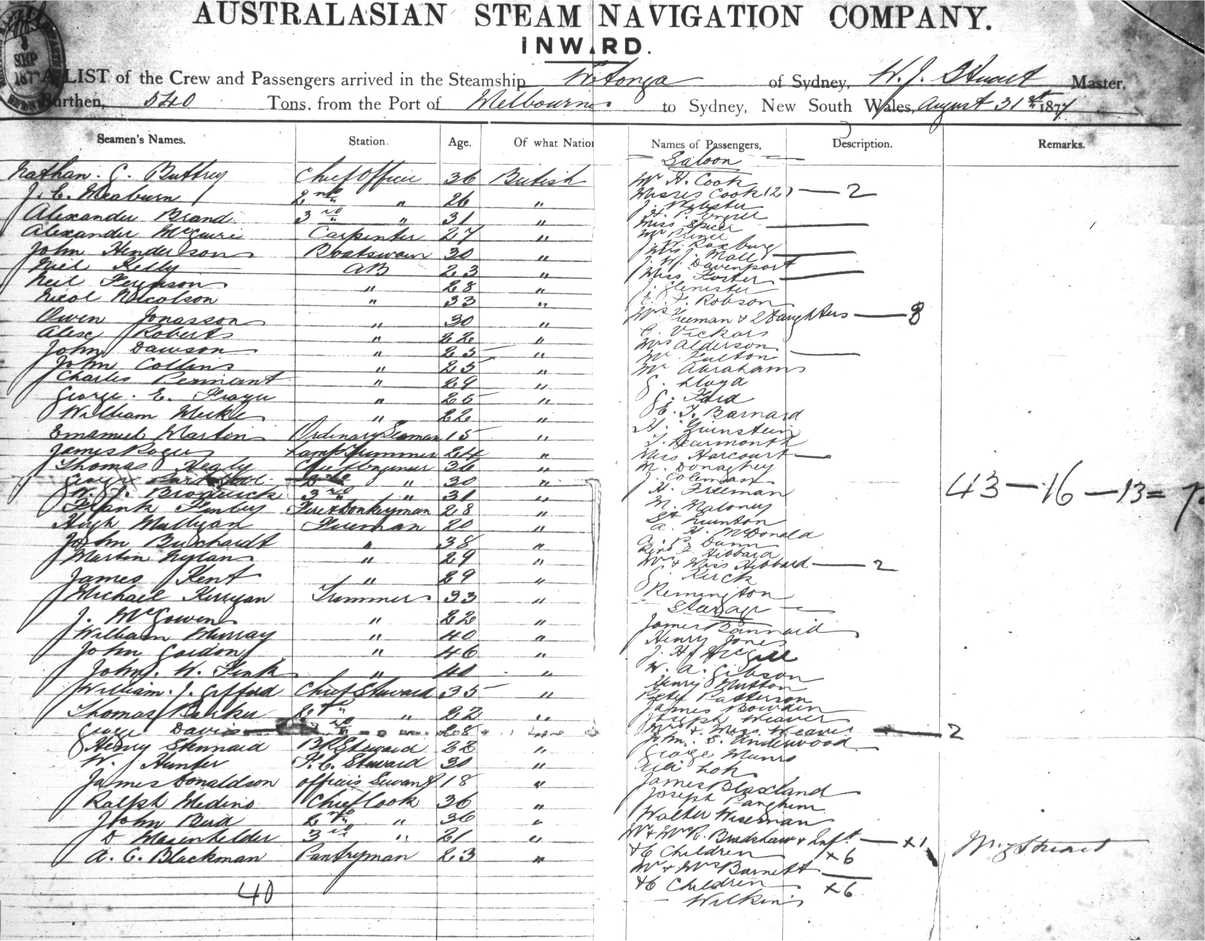 AUSTRALASIAN STEAM NAVIGATION COMPANY.
INWARD.
A LIST of the Crew and Passengers arrived in the Steamship Wotonga of Sydney, W. J. Stuart Master,
Burthen, 540 Tons, from the Port of Melbourne to Sydney, New South Wales, August 31st 1877
SEP
187
Seamen's Names. Station. Age. Of what Nation
Nathan. G. Buttrey Chief Officer 36 British
J. C. Meaburn 2nd " 26 "
Alexander Brand 3rd " 31 "
Alexander Carpenter 27 "
John Henderson Boatswain 30 "
Niel Kelly AB 23 "
Neil Ferguson " 28 "
Nicol Nicolson " 33 "
Owen Jonasson " 30 "
Alex Roberts " 22 "
John Dawson " 25 "
John Collins " 25 "
Charles Pennant " 29 "
George. E. " 25 "
William Meikle " 22 "
Emanuel Marton Ordinary Seaman 15 "
James Roger Lamp Trimmer 24 "
Thomas Chief Engineer 36 "
George " 30 "
W. J. Brodrick 3rd " 31 "
Frank Fire & Donkeyman 28 "
Hugh Fireman 20 "
John Burchardt " 38 "
Martin " 29 "
James Kent " 29 "
Michael Trimmer 33 "
J. McGowen " 22 "
William Murray " 40 "
John Gordon " 46 "
John. W. Fink " 40 "
William. J. Gifford Chief Steward 35 "
Thomas Barker 2nd " 22 "
George Davis 3rd " 28 "
Henry Steward 32 "
W. J Hunter Steward 30 "
James Donaldson Officers Servant 18 "
Ralph Chief Cook 36 "
John Reid 2nd " 36 "
D 3rd " 21 "
A. C. Blackman Pantryman 23 "
40
Names of Passengers. Description. Remarks.
Saloon
Mr H. Cook
Misses Cook (2) 2
J. Webster
Miss Spicer
Mr
W. Roxburg
Mrs J. Mall
J. W. Davenport
Miss Foster
J.
T. Robson
Mrs Freeman & 2 Daughters 3
C. Vickars
Mrs Alderson
Mr Fulton
Mr Abrahams
G. Lloyd
G. Ford
T. Barnard
T. Dearmonth
Miss Harcourt
M. Donaghey
J Coleman
H. Freeman
M. Maloney
43 — 16 — 13 =
McDonald
Dunn
Hibbard
Mrs & Miss Hibbard 2
Kirck
Remington
Steerage
James
Henry Jones
J. H.
W. A. Gibson
Henry Mutton
Peter Patterson
James Bowden
Joseph Weaver
Mrs & Miss Weaver 2
Wm. E. Underwood
George Munro
James Blaxland
Joseph
Walter Wiseman
Mr & Mrs R. Bradshaw & Inft x1
& 6 Children x6
W. J Stuart
Mr & Mrs Barnett
& 6 Children x6
Wilkins